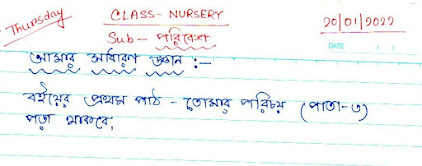 Thursday
CLASS- NURSERY
20/01/2022
Sub- পরিবেশ
DATE
আমার সাধারণ জ্ঞান :-
বইয়ের প্রথম পাঠ - তোমার পরিচয় (পাতা-৩)
পড়া থাকবে;